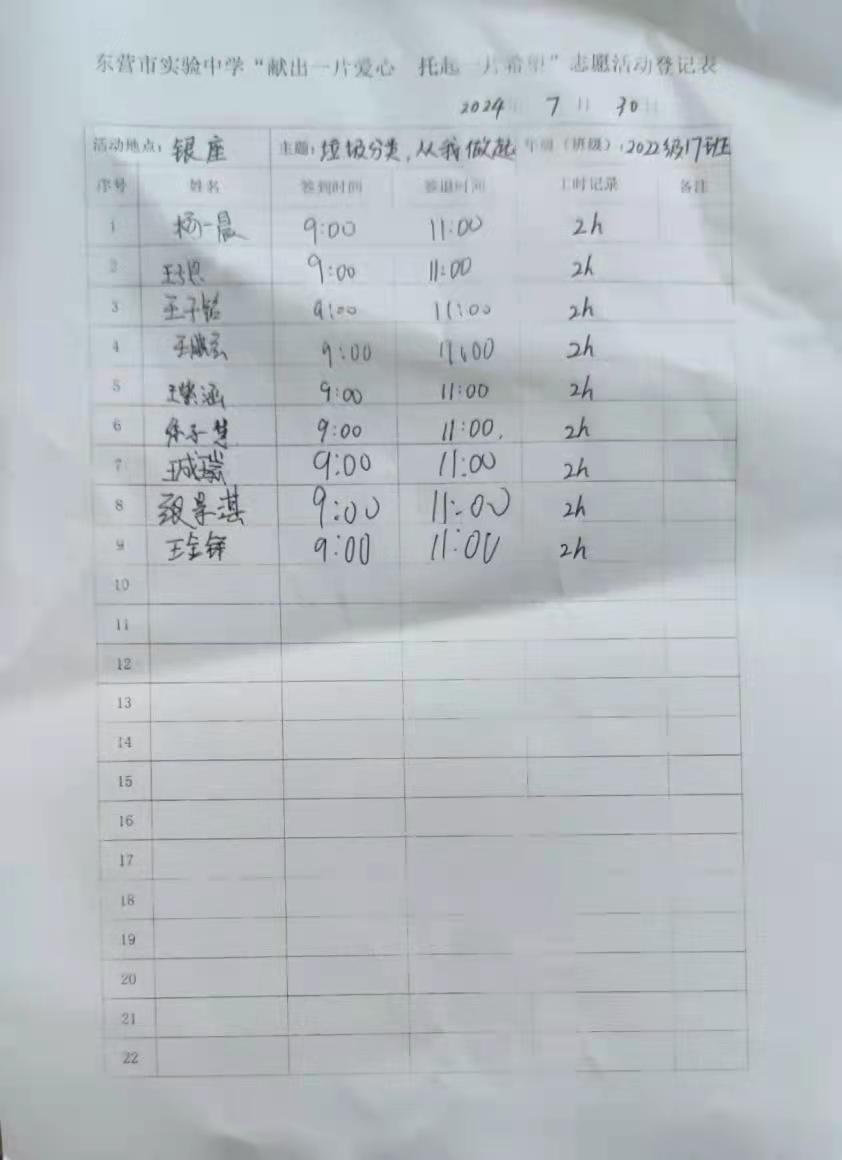 东营市实验中学“献出一片爱心 托起一片希望”志愿活动登记表
2024年 7 月 30日
活动地点：银座 主题：垃圾分类，从我做起 年级（班级）：2022级17班
序号 姓名 签到时间 签退时间 工时记录 备注
1 杨一晨 9:00 11:00 2h
2 9:00 11:00 2h
3 王子铭 9:00 11:00 2h
4 9:00 11:00 2h
5 王紫涵 9:00 11:00 2h
6 徐子慧 9:00 11:00. 2h
7 王成瑞 9:00 11:00 2h
8 段景淇 9:00 11:00 2h
9 王金铎 9:00 11:00 2h
10
11
12
13
14
15
16
17
18
19
20
21
22